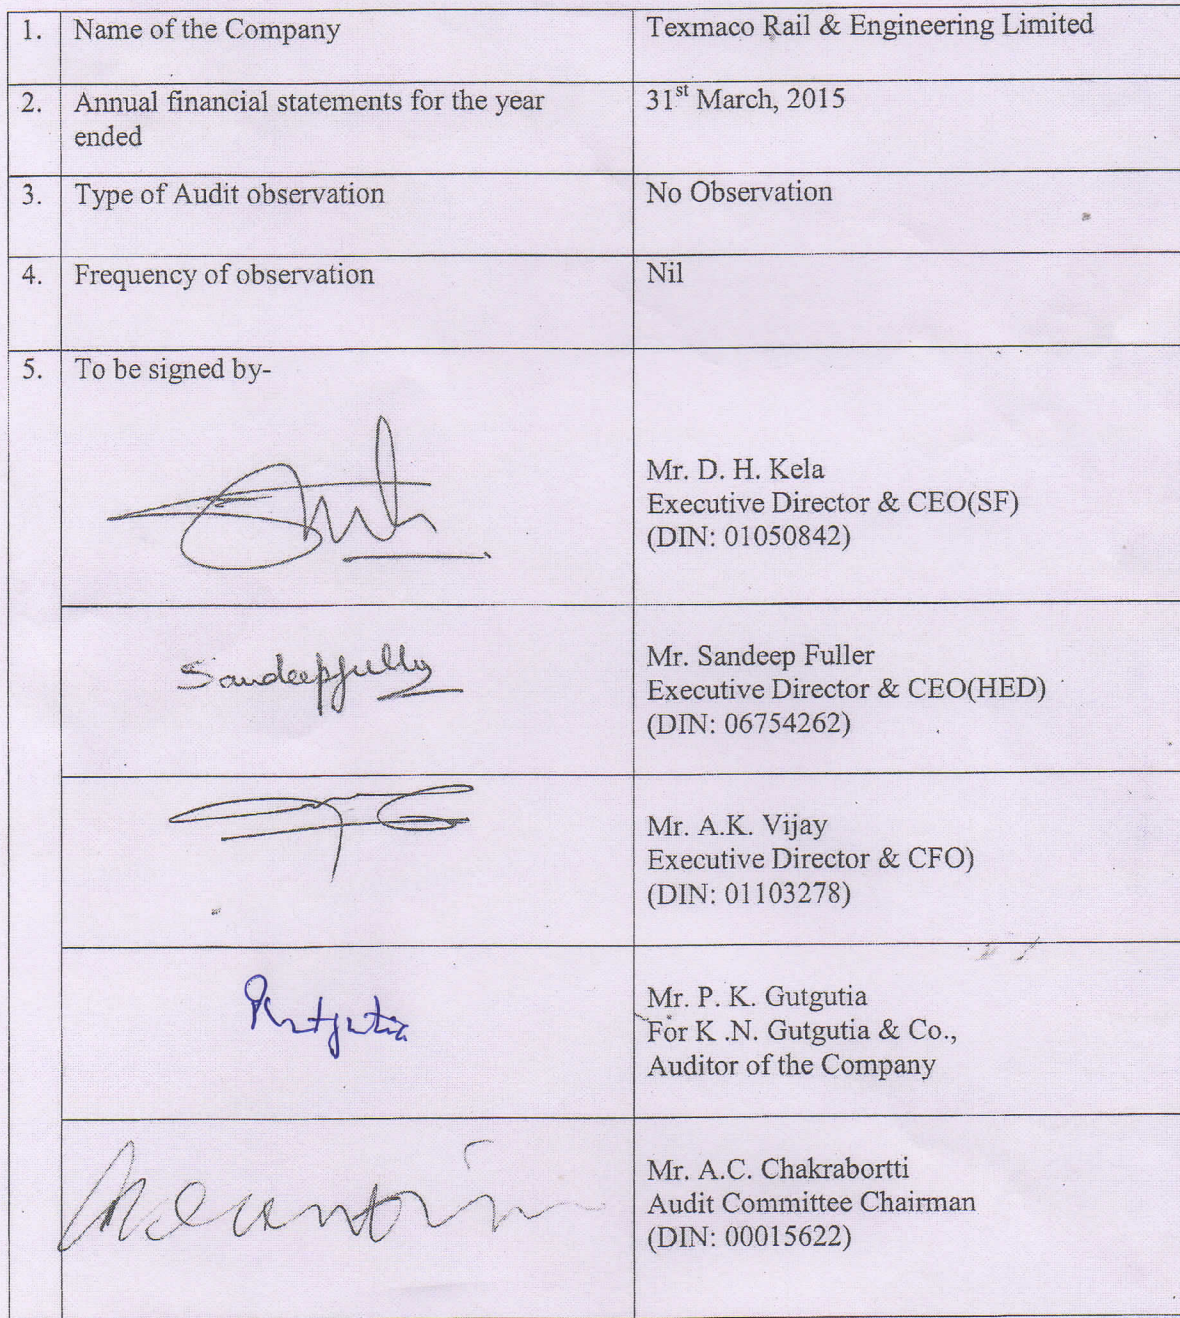 1. Name of the Company Texmaco Rail & Engineering Limited
2. Annual financial statements for the year 31st March, 2015
ended
3. Type of Audit observation No Observation
4. Frequency of observation Nil
5. To be signed by-
Mr. D. H. Kela
Executive Director & CEO(SF)
(DIN: 01050842)
Sandeepfuller
Mr. Sandeep Fuller
Executive Director & CEO(HED)
(DIN: 06754262)
Mr. A.K. Vijay
Executive Director & CFO)
(DIN: 01103278)
Mr. P. K. Gutgutia
For K .N. Gutgutia & Co.,
Auditor of the Company
Mr. A.C. Chakrabortti
Audit Committee Chairman
(DIN: 00015622)